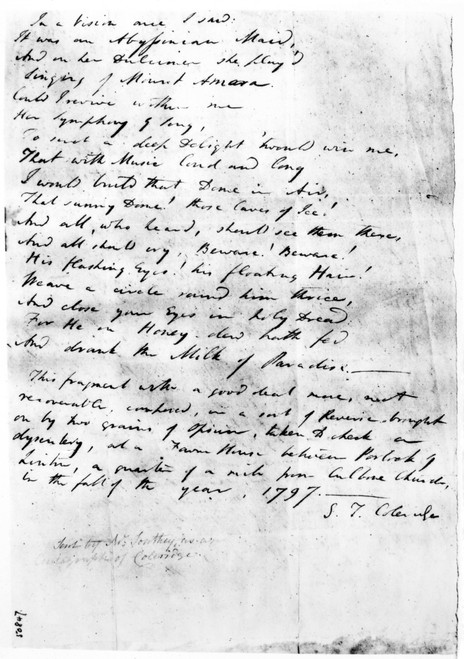 In a Vision once I saw:
It was an Abyssinian Maid,
And on her Dulcimer she play'd
Singing of Mount Amara.
Could I revive within me
Her Symphony & Song,
To such a deep Delight 'twould win me,
That with Music loud and long
I would build that Dome in Air,
That sunny Dome! those Caves of Ice!
And all, who heard, should see them there,
And all should cry, Beware! Beware!
His flashing Eyes! his floating Hair!
Weave a circle round him thrice,
And close your Eyes in holy Dread:
For He on Honey-dew hath fed
And drank the Milk of Paradise.—
This fragment with a good deal more, not
recoverable, composed, in a sort of Reverie brought
on by two grains of Opium, taken to check a
dysentery, at a Farm House between Porlock &
Linton, a quarter of a mile from Culbone Church,
in the fall of the year, 1797.—
S. T. Coleridge
Sent by Mr Southey, as an
Autograph of Coleridge